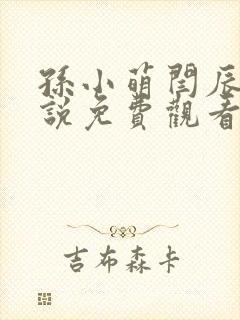 孫小萌閆辰
說免費觀看
吉布森卡